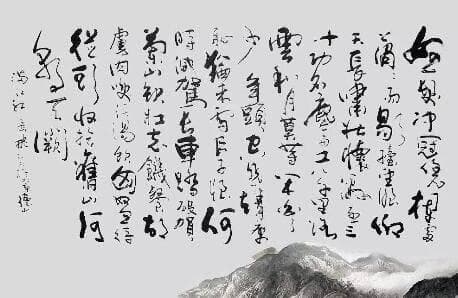 怒髮冲冠憑欄處
瀟瀟雨歇抬望眼仰
天長嘯壯懷激烈三
十功名塵與土八千里路
雲和月莫等閒白了
少年頭空悲切靖康
恥猶未雪臣子恨何
時滅駕長車踏破賀
蘭山缺壯志飢餐胡
虜肉笑談渴飲匈奴血待
從頭收拾舊山河
朝天闕
滿江紅 岳飛